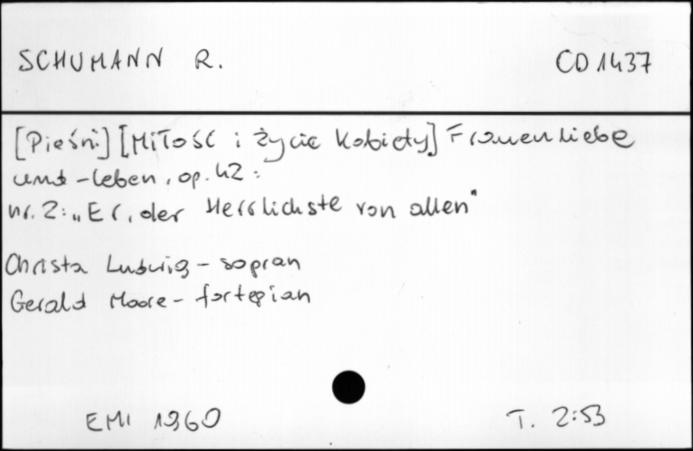 SCHUMANN R. CD 1437
[Pieśni] [Miłość i życie kobiety] Frauenliebe
und -leben, op. 42:
nr. 2: „Er, der Herrlichste von allen"
Christa Ludwig - sopran
Gerald Moore - fortepian
EMI 1960 T. 2:53